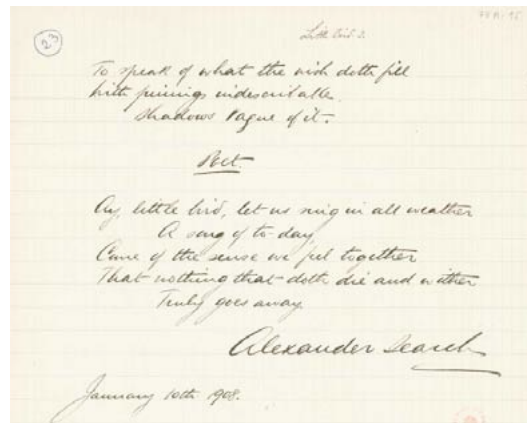 78A-95
23
Little bird. 2.
To speak of what the wish doth fill
With pinings indescribable.
Shadows vague of it.
Poet.
Ay, little bird, let us sing in all weather
A song of to-day,
Came of the sense we feel together
That nothing that doth die and wither
Truly goes away.
Alexander Search
January 10th 1908.